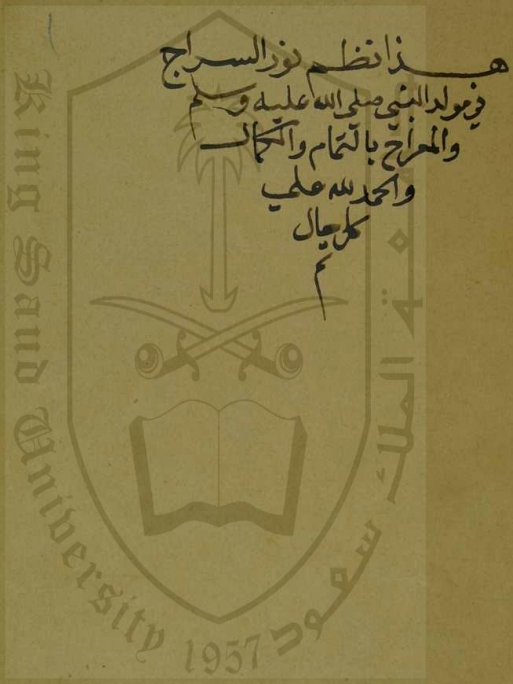 هـذا نظم نور السراج
في مولد النبي صلى الله عليه وسلم
والمعراج بالتمام والكمال
والحمد لله علي
كل حال
م
King Saud University 1957
جامعة الملك سعود